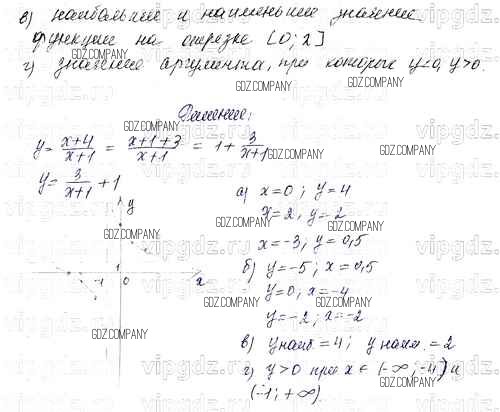 в) наибольшее и наименьшее значение
функции на отрезке [0; 2]
г) значение аргумента, при которых y<0, y>0.
Решение:
y = \frac{x+4}{x+1} = \frac{x+1+3}{x+1} = 1 + \frac{3}{x+1}
y = \frac{3}{x+1} + 1
а) x=0; y=4
x=2, y=2
x=-3, y=0,5
б) y=-5; x=0,5
y=0; x=-4
y=-2; x=-2
в) y наиб. = 4; y наим. = 2
г) y>0 при x ∈ (-∞; -4) и
(-1; +∞).
y
1
-1 0 x
GDZ.COMPANY
vipgdz.ru